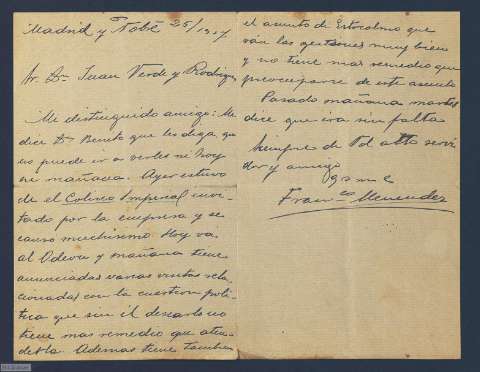 Madrid y Nobe 25/1917
Sr. Dn. Juan Verde y Rodrigz
Mi distinguido amigo: Me
dice Dn Benito que les diga que
no puede ir a verles ni hoy
ni mañana. Ayer estuvo
de el Coliceo Imperial invi-
tado por la empresa y se
canso muchisimo. Hoy va
al Odeon y mañana tiene
anunciadas varias visitas rela-
cionadas con la cuestion poli-
tica que sin el desearlo no
tiene mas remedio que aten-
derla. Ademas tiene tambien
el asunto de Estocolmo que
van las gestiones muy bien
y no tiene mas remedio que
preocuparse de este asunto
Pasado mañana martes
dice que ira sin falta
Siempre de Vd atto servi
dor y amigo
q s m e
Franco Menendez